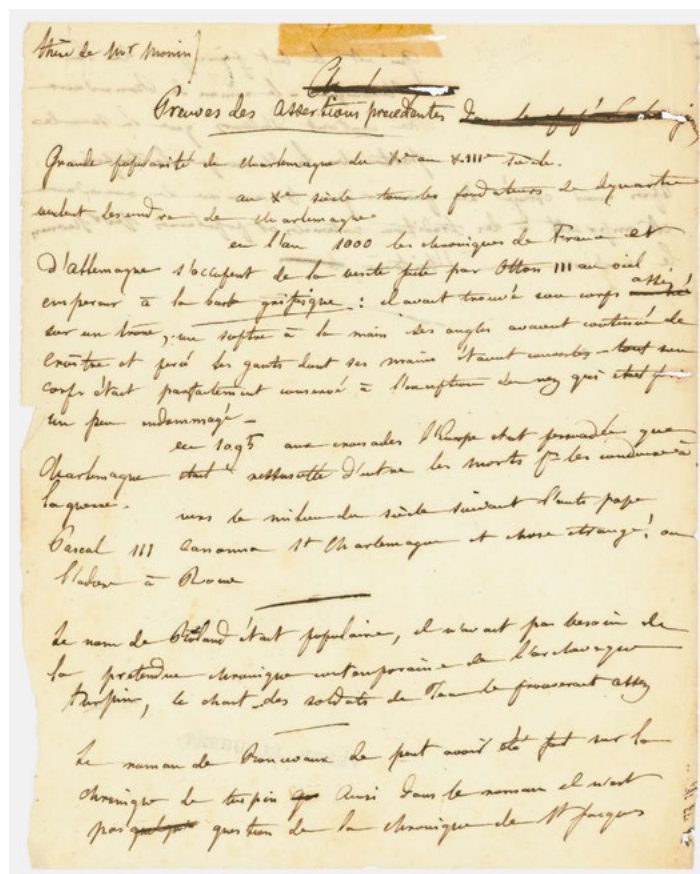 thèse de Mr Monin)
Preuves des assertions précédentes
Grande popularité de Charlemagne du Xe au XIIIe siècle.
au Xe siècle tous les fondateurs de dynastie
veulent descendre de Charlemagne
en l'an 1000 les chroniques de France et
d'allemagne s'occupent de la visite faite par Otton III au vieil
empereur à la barbe : il avait trouvé son corps assis
sur un trône, un sceptre à la main ses ongles avaient continué de
croître et percé les gants dont ses mains étaient couvertes – tout son
corps était parfaitement conservé à l'exception du nez qui était
un peu endommagé –
en 1095 aux croisades l'Europe était persuadée que
Charlemagne était ressuscité d'entre les morts pr les conduire à
la guerre.
vers le milieu du siècle suivant l'anti pape
Pascal III canonisa St Charlemagne et chose étrange! on
l'adore à Rome
Le nom de Roland était populaire, il n'avait pas besoin de
la prétendue chronique contemporaine de l'archevêque
turpin, le chant des soldats de le prouverait assez
Le roman de Roncevaux ne peut avoir été fait sur la
chronique de turpin ainsi dans le roman il n'est
pas question de la chronique de St Jacques